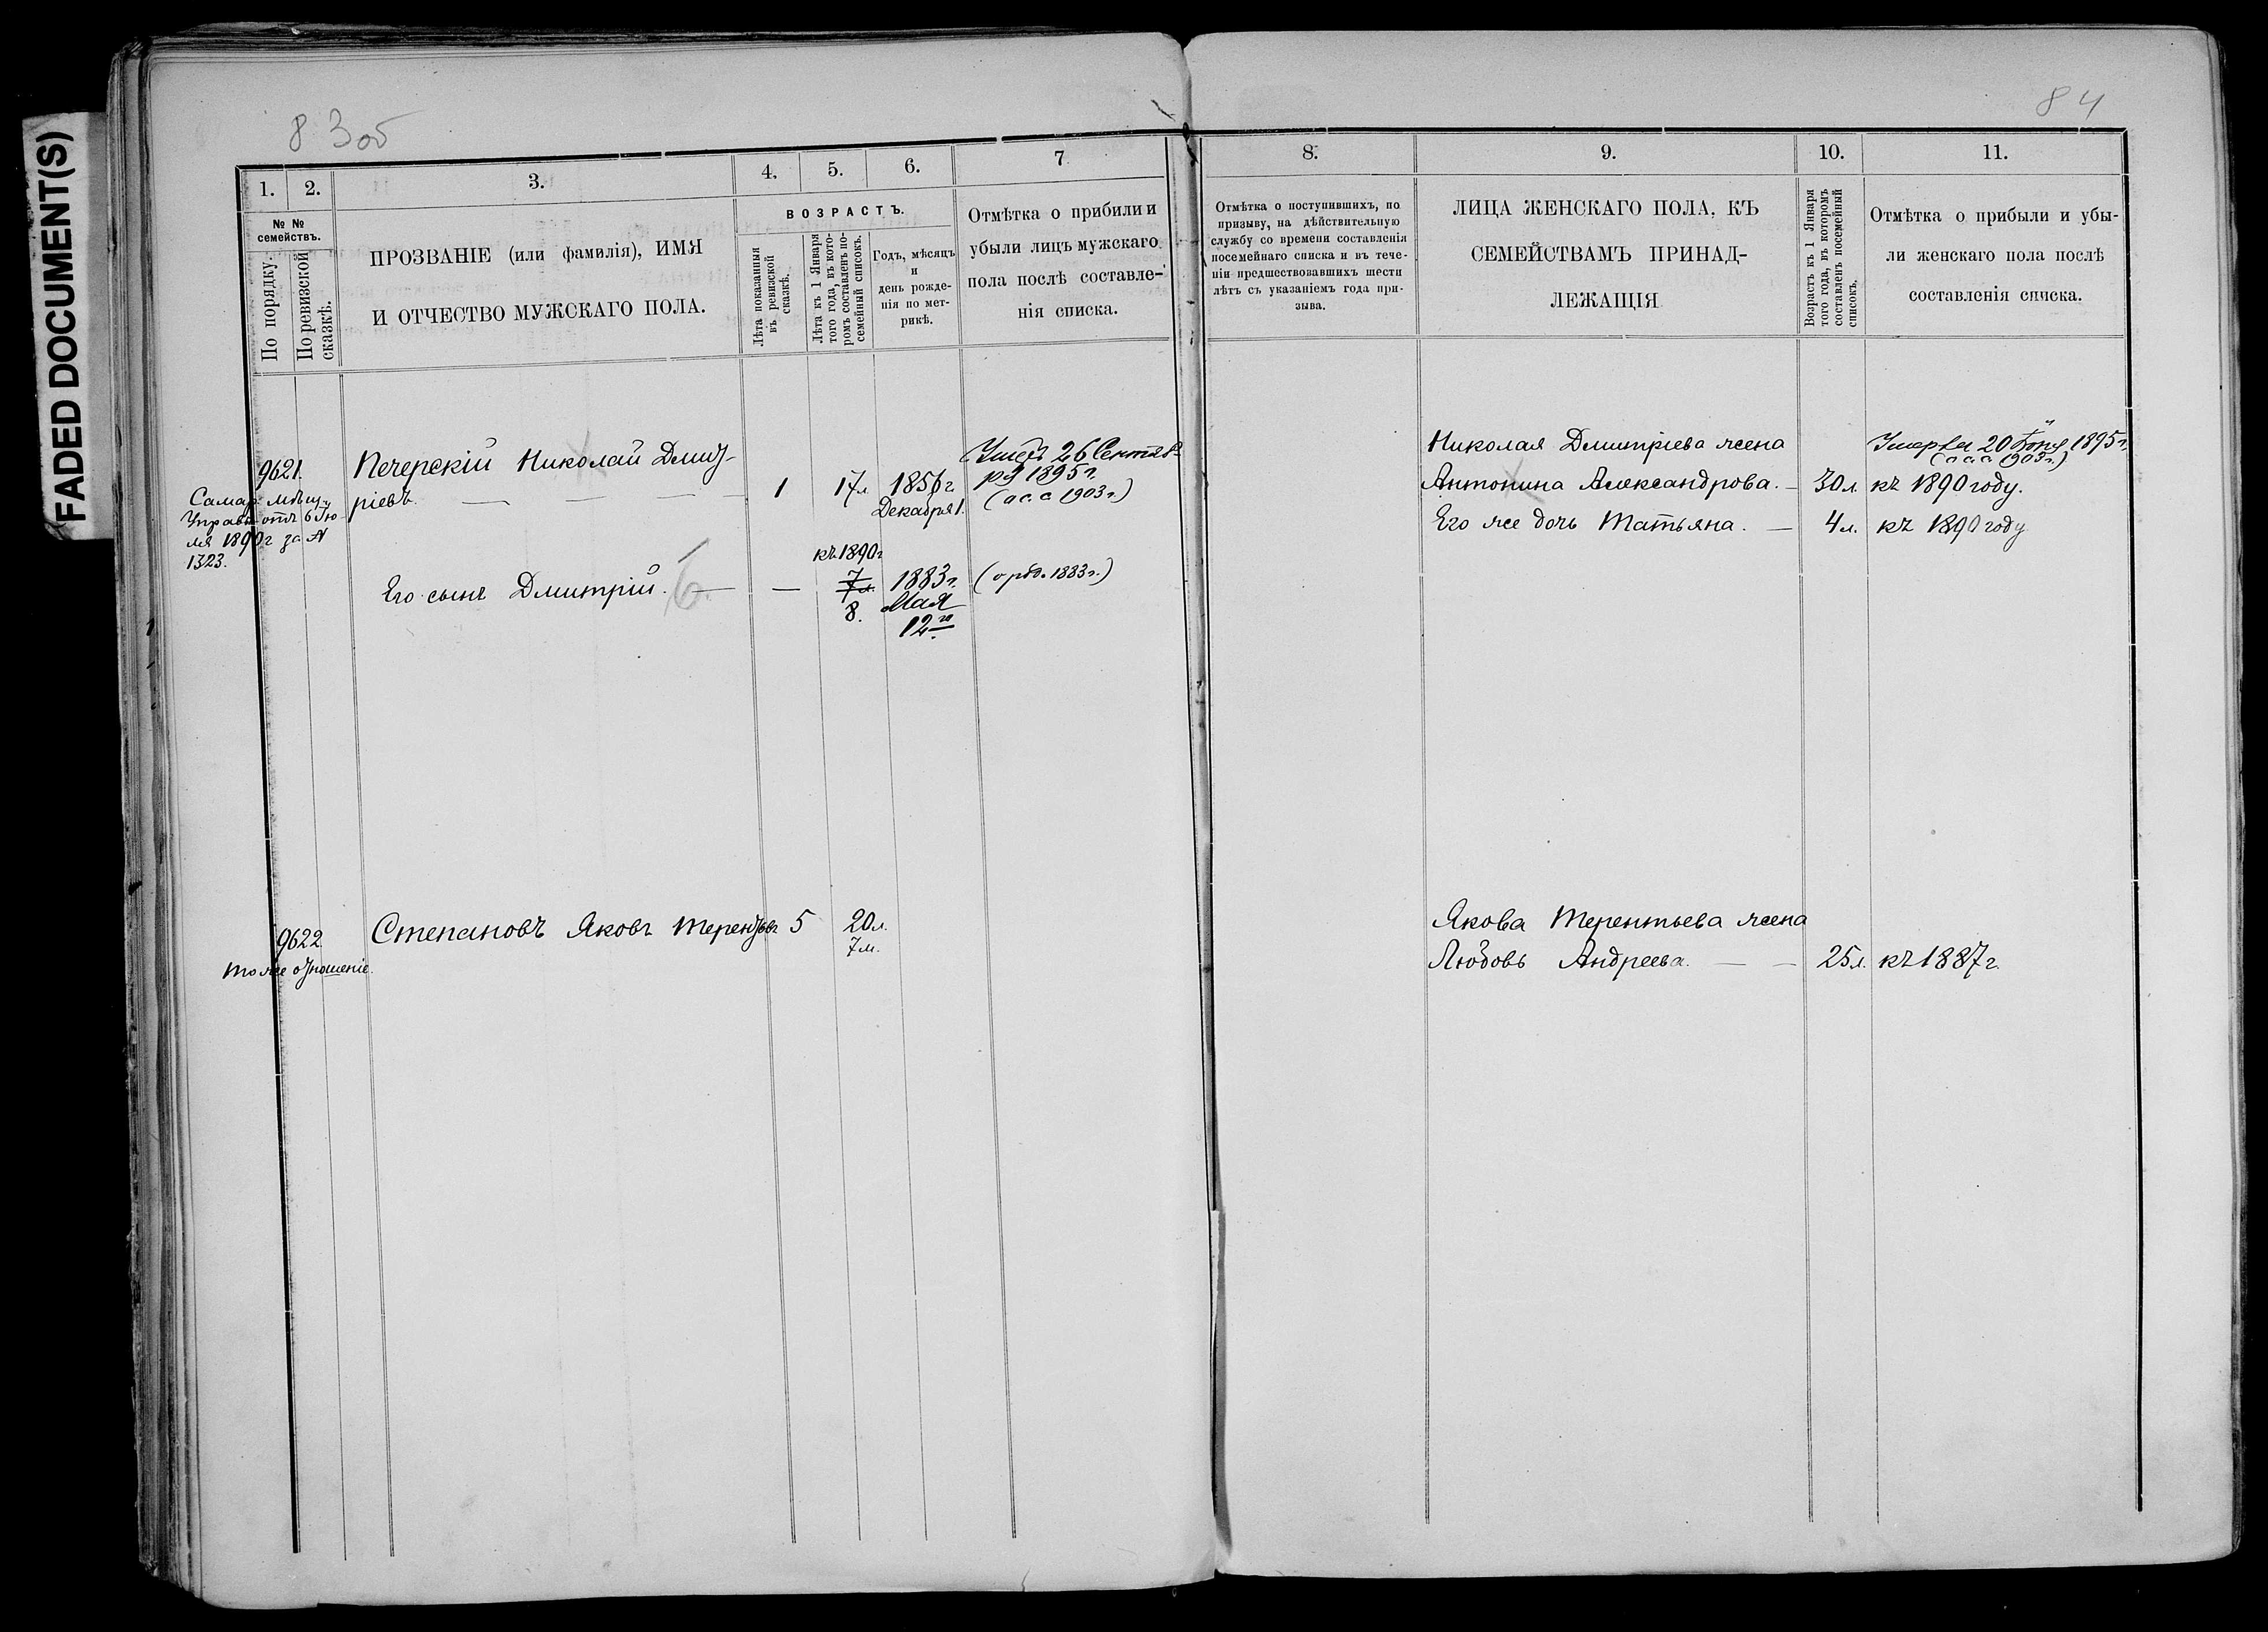 FADED DOCUMENT(S)
83об
84
1.
2.
3.
4.
5.
6.
7
№ №
семействъ.
По порядку.
По ревизской
сказкѣ.
ПРОЗВАНІЕ (или фамилія), ИМЯ
И ОТЧЕСТВО МУЖСКАГО ПОЛА.
ВОЗРАСТЪ.
Лѣта показанныя
въ ревизской
сказкѣ.
Лѣта къ 1 Января
того года, въ кото-
ромъ составленъ по-
семейный списокъ.
Годъ, мѣсяцъ
и
день рожде-
нія по мет-
рикѣ.
Отмѣтка о прибили и
убыли лицъ мужскаго
пола послѣ составле-
нія списка.
9621.
Самар. мѣщ.
Управы отъ 6 Ію-
ля 1890 г за №
1323.
Печерскій Николай Дмит-
ріевъ.
1
17 л
1856 г
Декабря 1.
26 Сентяб-
ря 1895 г.
1903 г.)
Его сынъ Дмитрій.
къ 1890 г
7
8.
1883 г.
Мая
12го
1883 г.)
9622
Тоже отношеніе.
Степановъ Яковъ Терентьевъ
5
20 л.
7 м.
8.
9.
10.
11.
Отмѣтка о поступившихъ, по
призыву, на дѣйствительную
службу со времени составленія
посемейнаго списка и въ тече-
ніи предшествовавшихъ шести
лѣтъ съ указаніемъ года при-
зыва.
ЛИЦА ЖЕНСКАГО ПОЛА, КЪ
СЕМЕЙСТВАМЪ ПРИНАД-
ЛЕЖАЩІЯ
Возрастъ къ 1 Января
того года, въ которомъ
составленъ посемейный
списокъ.
Отмѣтка о прибыли и убы-
ли женскаго пола послѣ
составленія списка.
Николая Дмитріева жена
Антонина Александрова.
30 л.
Умерла 20 1895 г.
1903 г.)
къ 1890 году.
Его же дочь Татьяна.
4 л.
къ 1890 году
Якова Терентьева жена
Любовь Андреева.
25 л.
къ 1887 г.